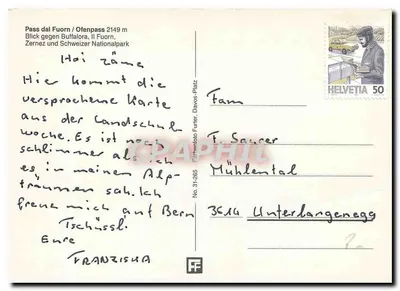 Pass dal Fuorn / Ofenpass 2149 m
Blick gegen Buffalora, Il Fuorn,
Zernez und Schweizer Nationalpark
Hoi zäme
Hier kommt die
versprochene Karte
aus der Landschul-
woche. Es ist noch
schlimmer als ich
es in meinen Alp-
träumen sah. Ich
freue mich auf Bern
Tschüssli
Eure
FRANZISKA
No. 31-265 Furter, Davos-Platz
HELVETIA 50
Fam
F. Saurer
Mühlental
3614 Unterlangenegg
FF